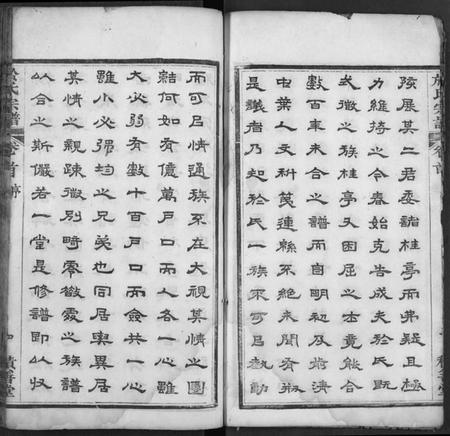 於氏宗譜 卷首
陔展其二君委諸桂亭而弗疑且極
力維持之令春始克告成夫於氏既
式微之族桂亭又困屈之士竟能合
數百年未合之譜而自明初及前清
中葉人文科第連緜不絕未聞有叛
是議者乃知於氏一族不可且勸勸
而可已情通族不在大視其情之團
結何如有億萬戶口而人各一心雖
大必弱有數十百戶口而僉共一心
雖小必彊均之兄弟也同居與異居
其情之親疎微別畸零散處之族譜
以合之斯儼若一堂是修譜即以收
於氏宗譜 卷首 序
積善堂